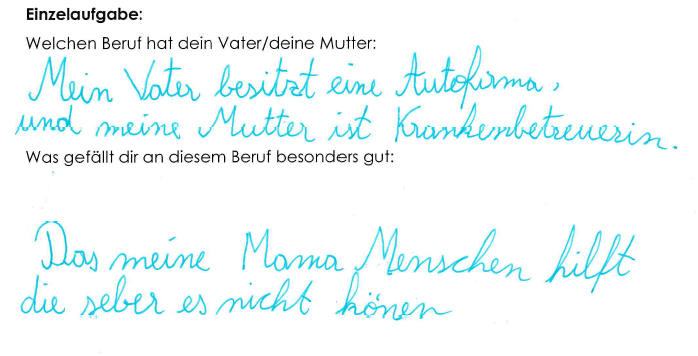 Einzelaufgabe:
Welchen Beruf hat dein Vater/deine Mutter:
Mein Vater besitzt eine Autofirma,
und meine Mutter ist Krankenbetreuerin.
Was gefällt dir an diesem Beruf besonders gut:
Das meine Mama Menschen hilft
die seber es nicht könen